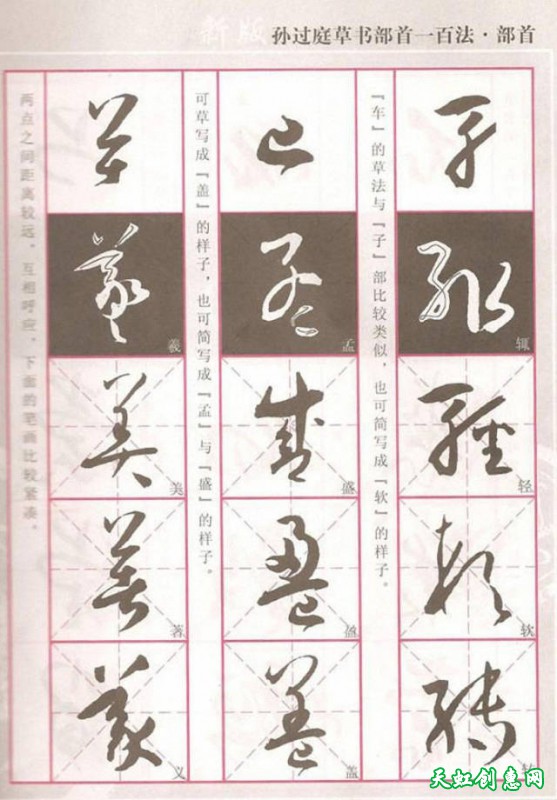 新版 孙过庭草书部首一百法·部首
『车』的草法与『子』部比较类似，也可简写成『软』的样子。
辄
轻
软
转
可草写成『盖』的样子，也可简写成『孟』与『盛』的样子。
孟
盛
盈
盖
两点之间距离较远，互相呼应，下面的笔画比较紧凑。
羲
美
著
义
天虹创惠网